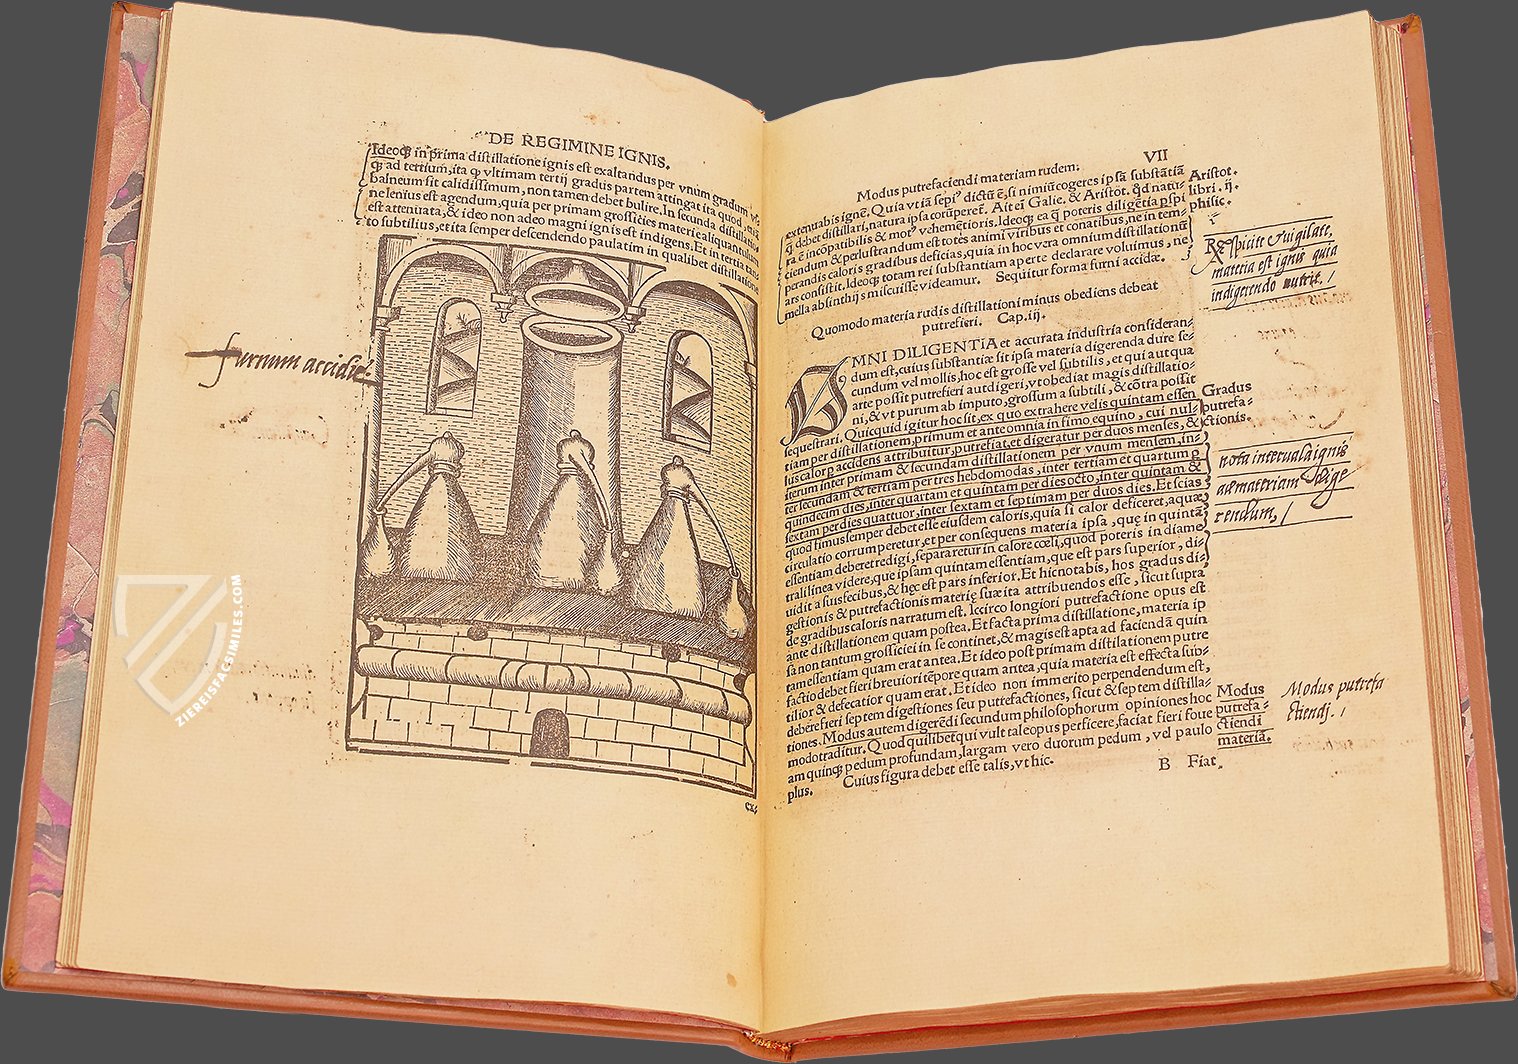 DE REGIMINE IGNIS.
Ideoq; in prima distillatione ignis est exaltandus per vnum gradum vs
q; ad tertium, ita q vltimam tertij gradus partem attingat ita quod
balneum sit calidissimum, non tamen debet bulire. In secunda distillatio-
ne lenius est agendum, quia per primam grossicies materię aliquantulum
est attenuata, & ideo non adeo magni ignis est indigens. Et in tertia tan
to subtilius, et ita semper descendendo paulatim in qualibet distillatione
furnum accidię
ex-
VII
Modus putrefaciendi materiam rudem.
extenuabis ignē. Quia vt iā sepiꝰ dictū ē, si nimiū cogeres ipsā substātiā
debet distillari, natura ipsa corūperet. Ait eī Galie. & Aristot. qd natu-
ra ē incōpatibilis & motꝰ vehemētioris. Ideoq; ea q̃ poteris diligētia pspi
ciendum & perlustrandum est totēs animi viribus et conatibus, ne in tem-
perandis caloris gradibus deficias, quia in hoc vera omnium distillationū
ars consistit. Ideoq; totam rei substantiam aperte declarare voluimus, ne
mella absinthijs miscuisse videamur. Sequitur forma furni accidæ.
Aristot.
libri. ij.
phisic.
Respicite & uigilate,
materia est ignis quia
indigerendo nutrit. /
Quomodo materia rudis distillationi minus obediens debeat
putrefieri. Cap. iij.
OMNI DILIGENTIA et accurata industria consideran-
dum est, cuius substantiæ sit ipsa materia digerenda dure se-
cundum vel mollis, hoc est grosse vel subtilis, et qui aut qua
arte possit putrefieri aut digeri, vt obediat magis distillatio-
ni, & vt purum ab imputo, grossum a subtili, & cōtra possit
sequestrari. Quicquid igitur hoc sit, ex quo extrahere velis quintam essen
tiam per distillationem, primum et ante omnia in fimo equino, cui nul-
lus calor p accidens attribuitur, putrefiat, et digeratur per duos menses, &
iterum inter primam & secundam distillationem per vnum mensem, in-
ter secundam & tertiam per tres hebdomodas, inter tertiam et quartum p
quindecim dies, inter quartam et quintam per dies octo, inter quintam &
sextam per dies quattuor, inter sextam et septimam per duos dies. Et scias
quod fimus semper debet esse eiusdem caloris, quia si calor deficeret, aquæ
circulatio corrumperetur, et per consequens materia ipsa, quę in quintā
essentiam deberet redigi, separaretur in calore cœli, quod poteris in diame
trali linea videre, que ipsam quintam essentiam, que est pars superior, di-
uidit a suis fecibus, & hęc est pars inferior. Et hic notabis, hos gradus di-
gestionis & putrefactionis materię suæ ita attribuendos esse, sicut supra
de gradibus caloris narratum est. Iccirco longiori putrefactione opus est
ante distillationem quam postea. Et facta prima distillatione, materia ip
sa non tantum grossicici in se continet, & magis est apta ad faciendā quin
tam essentiam quam erat antea. Et ideo post primam distillationem putre
factio debet fieri breuiori tēpore quam antea, quia materia est effecta sub-
tilior & defecatior quam erat. Et ideo non immerito perpendendum est,
debere fieri septem digestiones seu putrefactiones, sicut & septem distilla-
tiones. Modus autem digerēdi secundum philosophorum opiniones hoc
modo traditur. Quod quilibet qui vult taleopus perficere, faciat fieri foue
am quinq; pedum profundam, largam vero duorum pedum, vel paulo
plus. Cuius figura debet esse talis, vt hic.
B Fiat
Gradus
putrefa-
ctionis.
nota interuala ignis
ad materiam dige
rendum, /
Modus
putrefa-
ctiendi
materiā.
Modus putrefa
ctiendj. /
ZIEREISFACSIMILES.COM